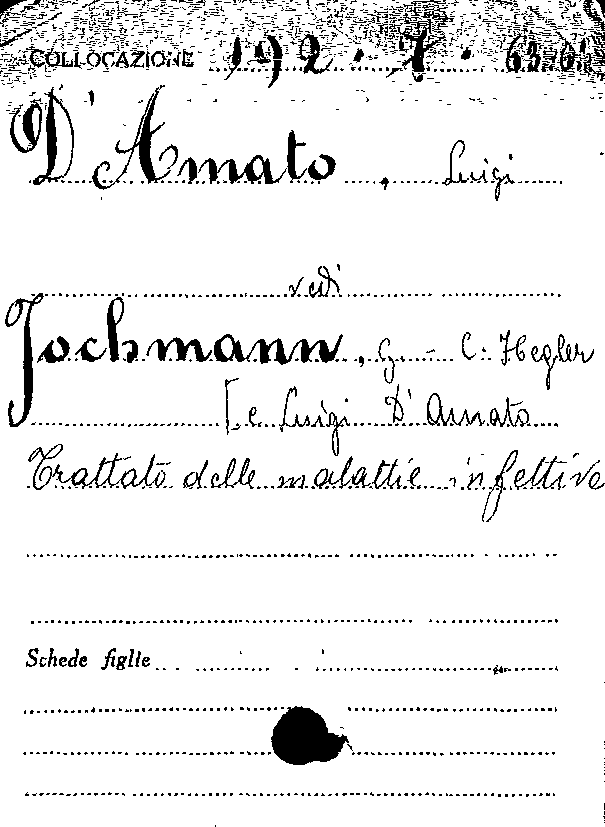 COLLOCAZIONE 192.7.
D'Amato, Luigi
vedi
Jochmann, G. - C. Hegler
[e Luigi D'Amato
Trattato delle malattie infettive
Schede figlie